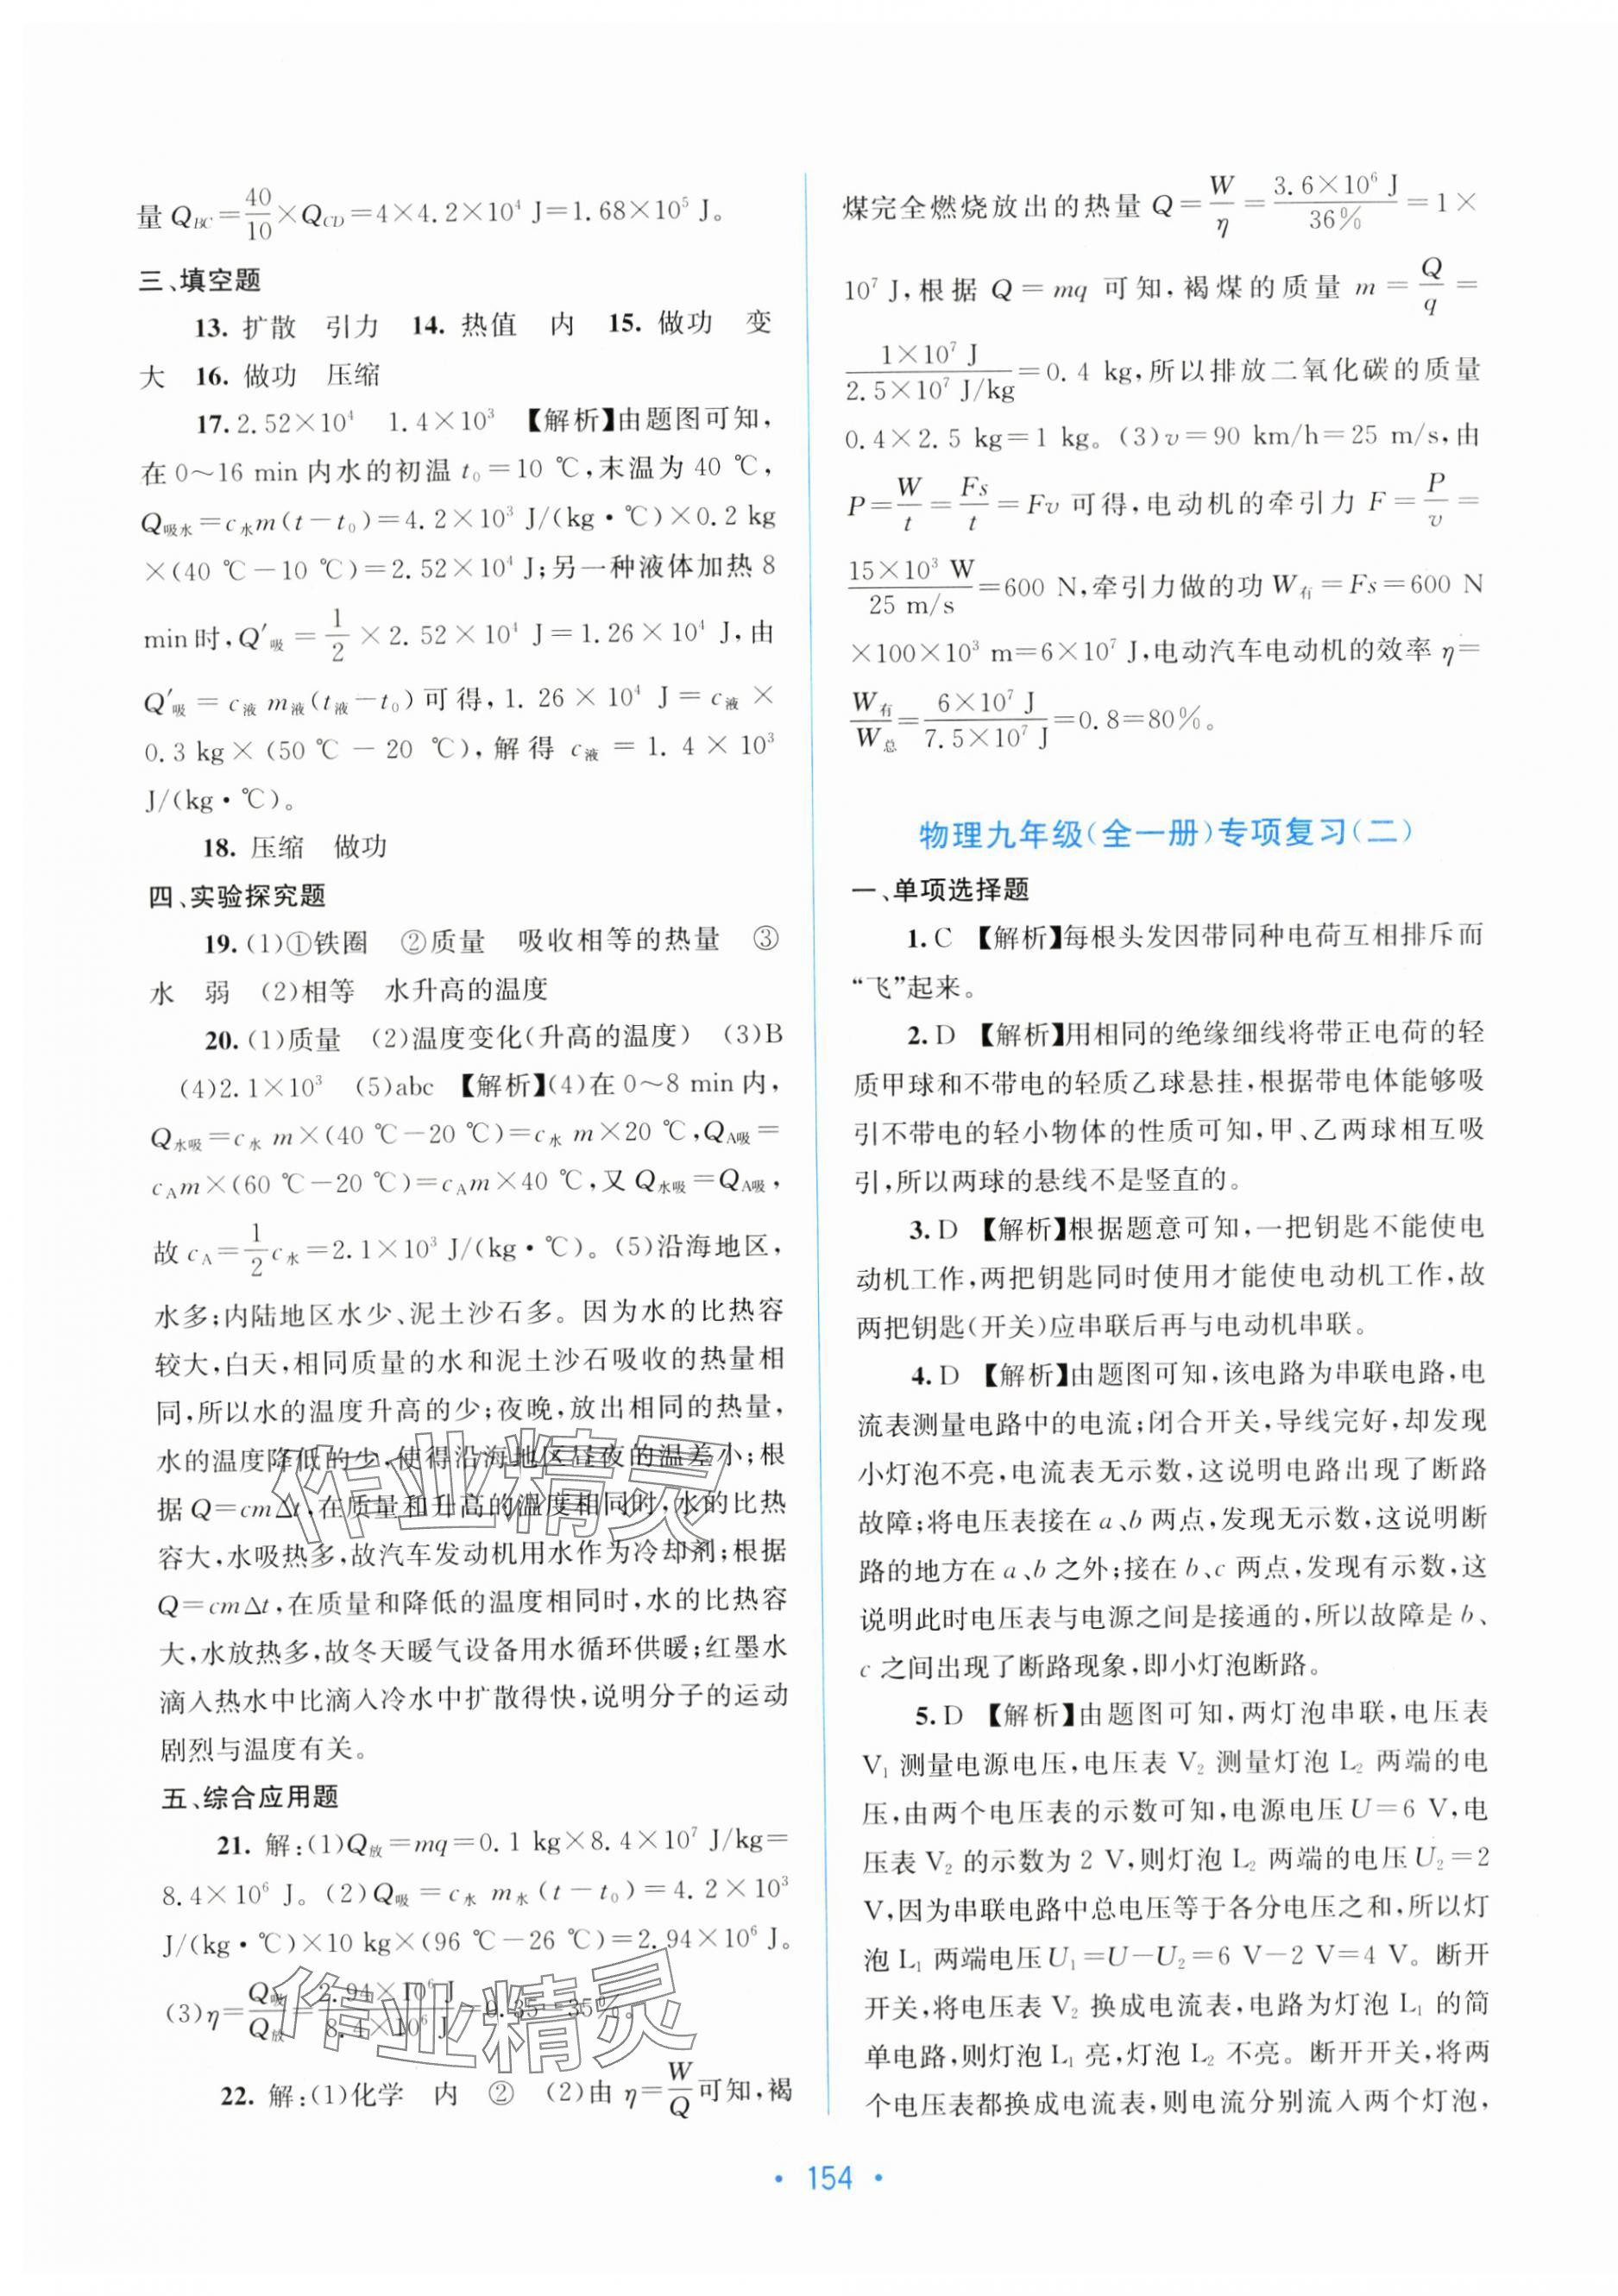 量 Q_BC=40/10×Q_CD=4×4.2×10⁴ J=1.68×10⁵ J。
三、填空题
13. 扩散 引力 14. 热值 内 15. 做功 变
大 16. 做功 压缩
17.2.52×10⁴ 1.4×10³ 【解析】由题图可知,
在 0～16 min 内水的初温 t₀=10 ℃,末温为 40 ℃,
Q吸水=c水m(t-t₀)=4.2×10³ J/(kg·℃)×0.2 kg
×(40 ℃-10 ℃)=2.52×10⁴ J;另一种液体加热 8
min时,Q′吸=1/2×2.52×10⁴ J=1.26×10⁴ J,由
Q′吸=c液 m液(t液-t₀)可得,1.26×10⁴ J=c液×
0.3 kg×(50 ℃-20 ℃),解得 c液=1.4×10³
J/(kg·℃)。
18. 压缩 做功
四、实验探究题
19.(1)①铁圈 ②质量 吸收相等的热量 ③
水 弱 (2)相等 水升高的温度
20.(1)质量 (2)温度变化(升高的温度) (3)B
(4)2.1×10³ (5)abc 【解析】(4)在 0～8 min 内,
Q水吸=c水 m×(40 ℃-20 ℃)=c水 m×20 ℃,Q_A吸=
c_A m×(60 ℃-20 ℃)=c_A m×40 ℃,又 Q水吸=Q_A吸,
故 c_A=1/2c水=2.1×10³ J/(kg·℃)。(5)沿海地区,
水多;内陆地区水少、泥土沙石多。因为水的比热容
较大,白天,相同质量的水和泥土沙石吸收的热量相
同,所以水的温度升高的少;夜晚,放出相同的热量,
水的温度降低的少,使得沿海地区昼夜的温差小;根
据 Q=cmΔt,在质量和升高的温度相同时,水的比热
容大,水吸热多,故汽车发动机用水作为冷却剂;根据
Q=cmΔt,在质量和降低的温度相同时,水的比热容
大,水放热多,故冬天暖气设备用水循环供暖;红墨水
滴入热水中比滴入冷水中扩散得快,说明分子的运动
剧烈与温度有关。
五、综合应用题
21. 解:(1)Q放=mq=0.1 kg×8.4×10⁷ J/kg=
8.4×10⁶ J。(2)Q吸=c水 m水(t-t₀)=4.2×10³
J/(kg·℃)×10 kg×(96 ℃-26 ℃)=2.94×10⁶ J。
(3)η=Q吸/Q放=2.94×10⁶ J/8.4×10⁶ J=0.35=35%。
22. 解:(1)化学 内 ② (2)由 η=W/Q可知,褐
煤完全燃烧放出的热量 Q=W/η=3.6×10⁶ J/36%=1×
10⁷ J,根据 Q=mq 可知,褐煤的质量 m=Q/q=
1×10⁷ J/2.5×10⁷ J/kg=0.4 kg,所以排放二氧化碳的质量
0.4×2.5 kg=1 kg。(3)v=90 km/h=25 m/s,由
P=W/t=Fs/t=Fv 可得,电动机的牵引力 F=P/v=
15×10³ W/25 m/s=600 N,牵引力做的功 W有=Fs=600 N
×100×10³ m=6×10⁷ J,电动汽车电动机的效率 η=
W有/W总=6×10⁷ J/7.5×10⁷ J=0.8=80%。
物理九年级(全一册)专项复习(二)
一、单项选择题
1.C 【解析】每根头发因带同种电荷互相排斥而
“飞”起来。
2.D 【解析】用相同的绝缘细线将带正电荷的轻
质甲球和不带电的轻质乙球悬挂,根据带电体能够吸
引不带电的轻小物体的性质可知,甲、乙两球相互吸
引,所以两球的悬线不是竖直的。
3.D 【解析】根据题意可知,一把钥匙不能使电
动机工作,两把钥匙同时使用才能使电动机工作,故
两把钥匙(开关)应串联后再与电动机串联。
4.D 【解析】由题图可知,该电路为串联电路,电
流表测量电路中的电流;闭合开关,导线完好,却发现
小灯泡不亮,电流表无示数,这说明电路出现了断路
故障;将电压表接在 a、b 两点,发现无示数,这说明断
路的地方在 a、b 之外;接在 b、c 两点,发现有示数,这
说明此时电压表与电源之间是接通的,所以故障是 b、
c 之间出现了断路现象,即小灯泡断路。
5.D 【解析】由题图可知,两灯泡串联,电压表
V₁ 测量电源电压,电压表 V₂ 测量灯泡 L₂ 两端的电
压,由两个电压表的示数可知,电源电压 U=6 V,电
压表 V₂ 的示数为 2 V,则灯泡 L₂ 两端的电压 U₂=2
V,因为串联电路中总电压等于各分电压之和,所以灯
泡 L₁ 两端电压 U₁=U-U₂=6 V-2 V=4 V。断开
开关,将电压表 V₂ 换成电流表,电路为灯泡 L₁ 的简
单电路,则灯泡 L₁ 亮,灯泡 L₂ 不亮。断开开关,将两
个电压表都换成电流表,则电流分别流入两个灯泡,
· 154 ·
作业精灵
作业精灵